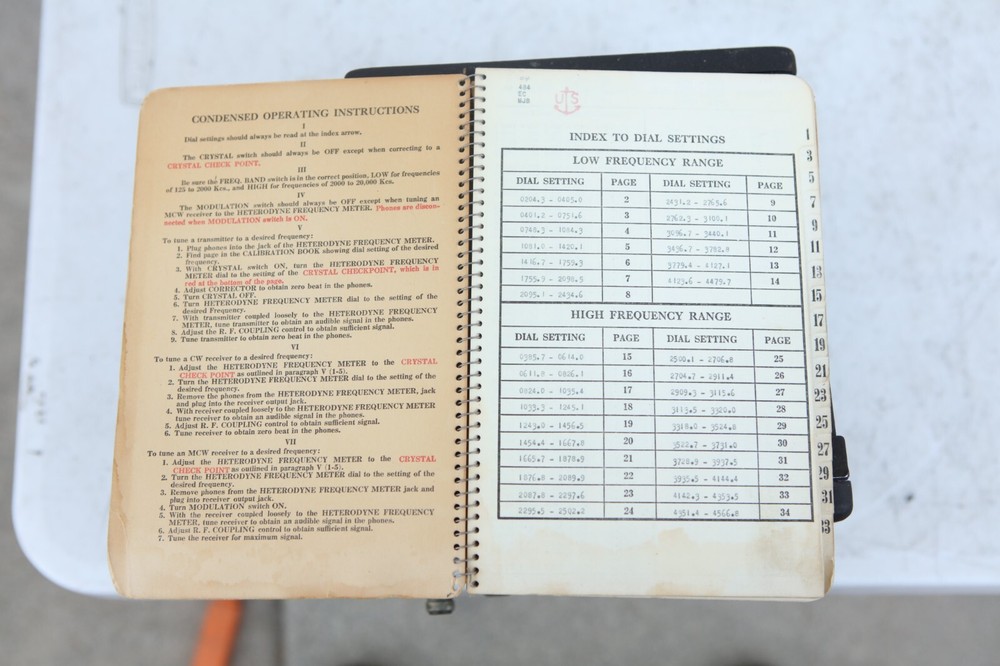 CONDENSED OPERATING INSTRUCTIONS
I
Dial settings should always be read at the index arrow.
II
The CRYSTAL switch should always be OFF except when correcting to a
CRYSTAL CHECK POINT.
III
Be sure the FREQ. BAND switch is in the correct position, LOW for frequencies
of 125 to 2000 Kcs., and HIGH for frequencies of 2000 to 20,000 Kcs.
IV
The MODULATION switch should always be OFF except when tuning an
MCW receiver to the HETERODYNE FREQUENCY METER. Phones are discon-
nected when MODULATION switch is ON.
V
To tune a transmitter to a desired frequency:
1. Plug phones into the jack of the HETERODYNE FREQUENCY METER.
2. Find page in the CALIBRATION BOOK showing dial setting of the desired
frequency.
3. With CRYSTAL switch ON, turn the HETERODYNE FREQUENCY
METER dial to the setting of the CRYSTAL CHECKPOINT, which is in
red at the bottom of the page.
4. Adjust CORRECTOR to obtain zero beat in the phones.
5. Turn CRYSTAL OFF.
6. Turn HETERODYNE FREQUENCY METER dial to the setting of the
desired Frequency.
7. With transmitter coupled loosely to the HETERODYNE FREQUENCY
METER, tune transmitter to obtain an audible signal in the phones.
8. Adjust the R. F. COUPLING control to obtain sufficient signal.
9. Tune transmitter to obtain zero beat in the phones.
VI
To tune a CW receiver to a desired frequency:
1. Adjust the HETERODYNE FREQUENCY METER to the CRYSTAL
CHECK POINT as outlined in paragraph V (1-5).
2. Turn the HETERODYNE FREQUENCY METER dial to the setting of the
desired frequency.
3. Remove the phones from the HETERODYNE FREQUENCY METER, jack
and plug into the receiver output jack.
4. With receiver coupled loosely to the HETERODYNE FREQUENCY METER
tune receiver to obtain an audible signal in the phones.
5. Adjust R. F. COUPLING control to obtain sufficient signal.
6. Tune receiver to obtain zero beat in the phones.
VII
To tune an MCW receiver to a desired frequency:
1. Adjust the HETERODYNE FREQUENCY METER to the CRYSTAL
CHECK POINT as outlined in paragraph V (1-5).
2. Turn the HETERODYNE FREQUENCY METER dial to the setting of the
desired frequency.
3. Remove phones from the HETERODYNE FREQUENCY METER jack and
plug into receiver output jack.
4. Turn MODULATION switch ON.
5. With the receiver coupled loosely to the HETERODYNE FREQUENCY
METER, tune receiver to obtain an audible signal in the phones.
6. Adjust R. F. COUPLING control to obtain sufficient signal.
7. Tune the receiver for maximum signal.
US
INDEX TO DIAL SETTINGS
LOW FREQUENCY RANGE
DIAL SETTING PAGE DIAL SETTING PAGE
0204.3 - 0403.0 2 2431.2 - 2763.6 9
0401.2 - 0751.6 3 2762.3 - 3100.1 10
0748.3 - 1084.3 4 3096.7 - 3440.1 11
1081.0 - 1420.1 5 3436.7 - 3782.8 12
1416.7 - 1759.3 6 3779.4 - 4127.1 13
1755.9 - 2098.5 7 4123.6 - 4479.7 14
2095.1 - 2434.6 8
HIGH FREQUENCY RANGE
DIAL SETTING PAGE DIAL SETTING PAGE
0385.7 - 0614.0 15 2500.1 - 2706.8 25
0611.8 - 0826.1 16 2704.7 - 2911.4 26
0824.0 - 1035.4 17 2909.3 - 3115.6 27
1033.3 - 1245.1 18 3113.5 - 3320.0 28
1243.0 - 1456.5 19 3318.0 - 3524.8 29
1454.4 - 1667.8 20 3522.7 - 3731.0 30
1665.7 - 1878.9 21 3728.9 - 3937.5 31
1876.8 - 2089.9 22 3935.5 - 4144.4 32
2087.8 - 2297.6 23 4142.3 - 4353.5 33
2295.5 - 2502.2 24 4351.4 - 4566.8 34
1
3
5
7
9
11
13
15
17
19
21
23
25
27
29
31
33